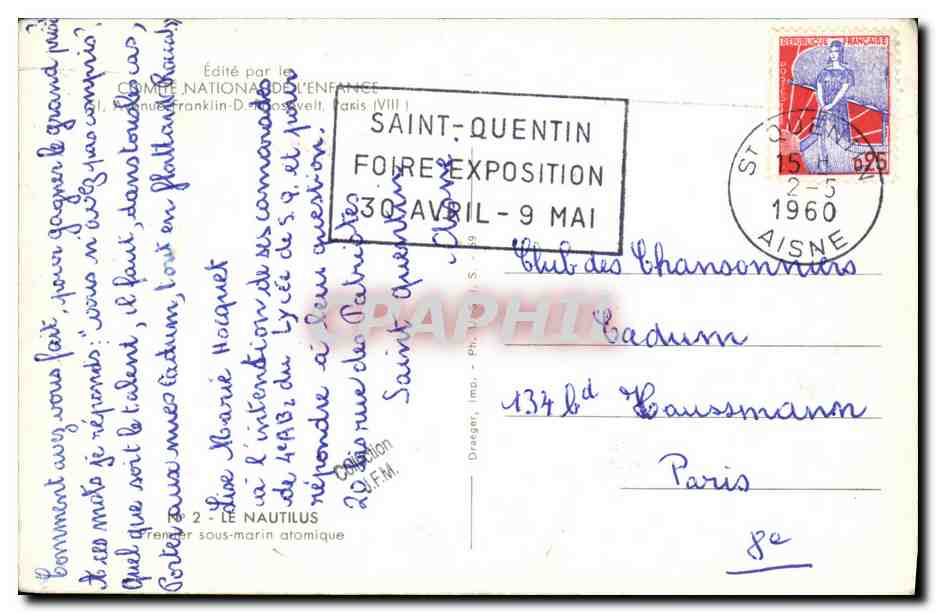 Comment avez vous fait, pour gagner le grand prix
A ces mots je réponds: "vous n'avez pas compris"
Quel que soit le talent, il faut, dans tous les cas,
Porter aux nues Cadum, tout en flattant
Lise Marie Hocquet
à l'intention de ses camarades
de 4e AB2 du Lycée de S.Q. et pour
répondre à leur question.
20 bis rue des Patriotes
Saint Quentin
Aisne.
Édité par le
COMITÉ NATIONAL DE L'ENFANCE
Avenue Franklin-D.-Roosevelt, Paris (VIII)
SAINT-QUENTIN
FOIRE EXPOSITION
30 AVRIL - 9 MAI
REPUBLIQUE FRANÇAISE
0,25
ST QUENTIN
15 H
2-5
1960
AISNE
Club des Chansonniers
Cadum
134 bd Haussmann
Paris
8e
Draeger, Imp. - Ph.
CPARPHIL
Collection
J.F.M.
N° 2 - LE NAUTILUS
Premier sous-marin atomique